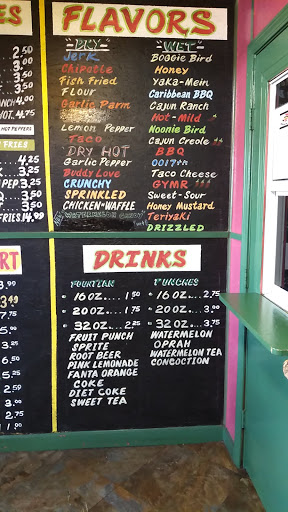 ES
2.50
.25
.25
.50
UNCH 4.00
HOT. 4.75
HOT PEPPERS
FRIES
4.25
3.25
3.25
PEP 3.25
FRIES. 14.99
FLAVORS
"DRY"
Jerk
Chipotle
Fish Fried
FLOUR
Garlic Parm
Lemon Pepper
TACO
DRY HOT
Garlic Pepper
Buddy Love
CRUNCHY
SPRINKLED
CHICKEN & WAFFLE
WATERMELON CANDY
"WET"
BOGGie Bird
Honey
Yaka-Mein
Caribbean BBQ
Cajun Ranch
Hot - Mild
Noonie Bird
Cajun Creole
BBQ
0017
Taco Cheese
GYMR
Sweet-Sour
Honey Mustard
Teriyaki
DRIZZLED
RT
3.49
DRINKS
FOUNTIAN
16 OZ.... 1.50
20 OZ.... 1.75
32 OZ.... 2.25
FRUIT PUNCH
SPRITE
ROOT BEER
PINK LEMONADE
FANTA ORANGE
COKE
DIET COKE
SWEET TEA
PUNCHES
16 OZ.... 2.75
20 OZ.... 3.25
32 OZ.... 3.75
WATERMELON
OPRAH
WATERMELON TEA
CONCOCTION